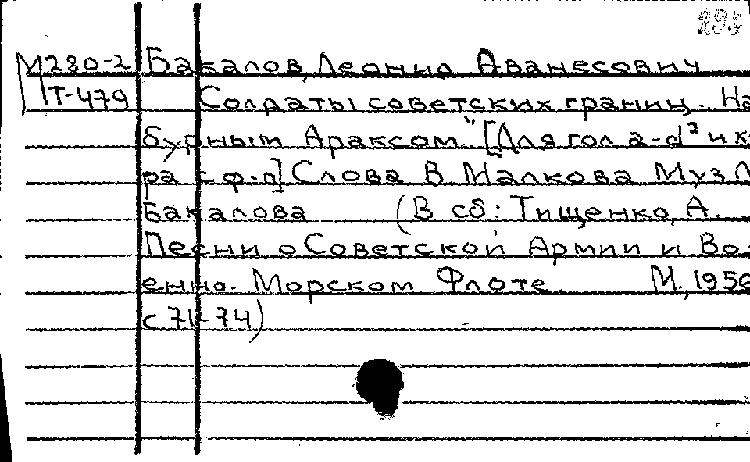 М280-2 Бакалов, Леонид Аванесович
Т-479 Солдаты советских границ. На
бурным Араксом" [Для гол. a-d² и к
ра с ф-п] Слова В. Малкова Муз Л
Бакалова (В сб: Тищенко, А.
Песни о Советской Армии и Во-
енно-Морском Флоте. М, 1956
с 71-74)